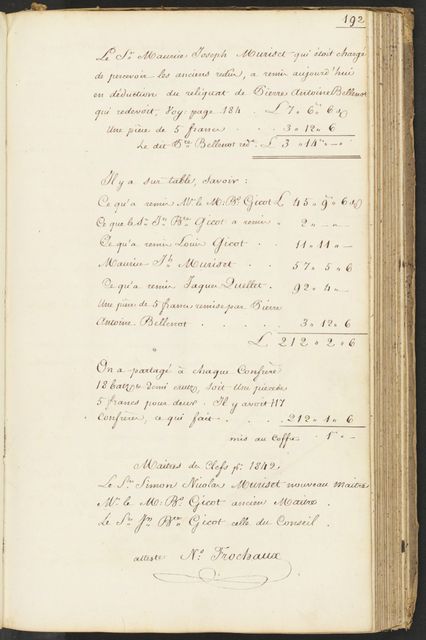 192
Le Sr. Maurice Joseph Muriset qui était chargé
de percevoir les anciens redus, a remis aujourd'hui
en déduction du reliquat de Pierre Antoine Bellenot
qui redevoit, Voy: page 184. £ 7 " 6 " 6
Une pièce de 5 francs 3 " 12 " 6
Le dit Pre. Bellenot redt. £ 3 " 14 " —
Il y a sur table, savoir:
Ce qu'a remis Mr. le M: Bs. Gicot £ 45 " 9 " 6
Ce que le Sr. Jn. Bte. Gicot a remis " 2 " — " —
Ce qu'a remis Louis Gicot . . 11 " 11 " —
Maurice Jh. Muriset . . 57 " 5 " 6
Ce qu'a remis Jaques Quellet . 92 " 4 " —
Une pièce de 5 francs remise par Pierre
Antoine Bellenot . . . . . 3 " 12 " 6
£ 212 " 2 " 6
On a partagé à chaque Confrère
18 batz, 1 demi crutz, soit Une pièce de
5 francs pour deux. Il y avoit 117
confrères, ce qui fait . . . 212 " 1 " 6
mis au Coffre . 1 " —
Maitres des Clefs pr. 1842.
Le Sr. Simon Nicolas Muriset nouveau maitre
Mr. le M: Bs. Gicot ancien Maitre.
Le Sr. Jn. Bte. Gicot celle du Conseil.
atteste Ns. Frochaux